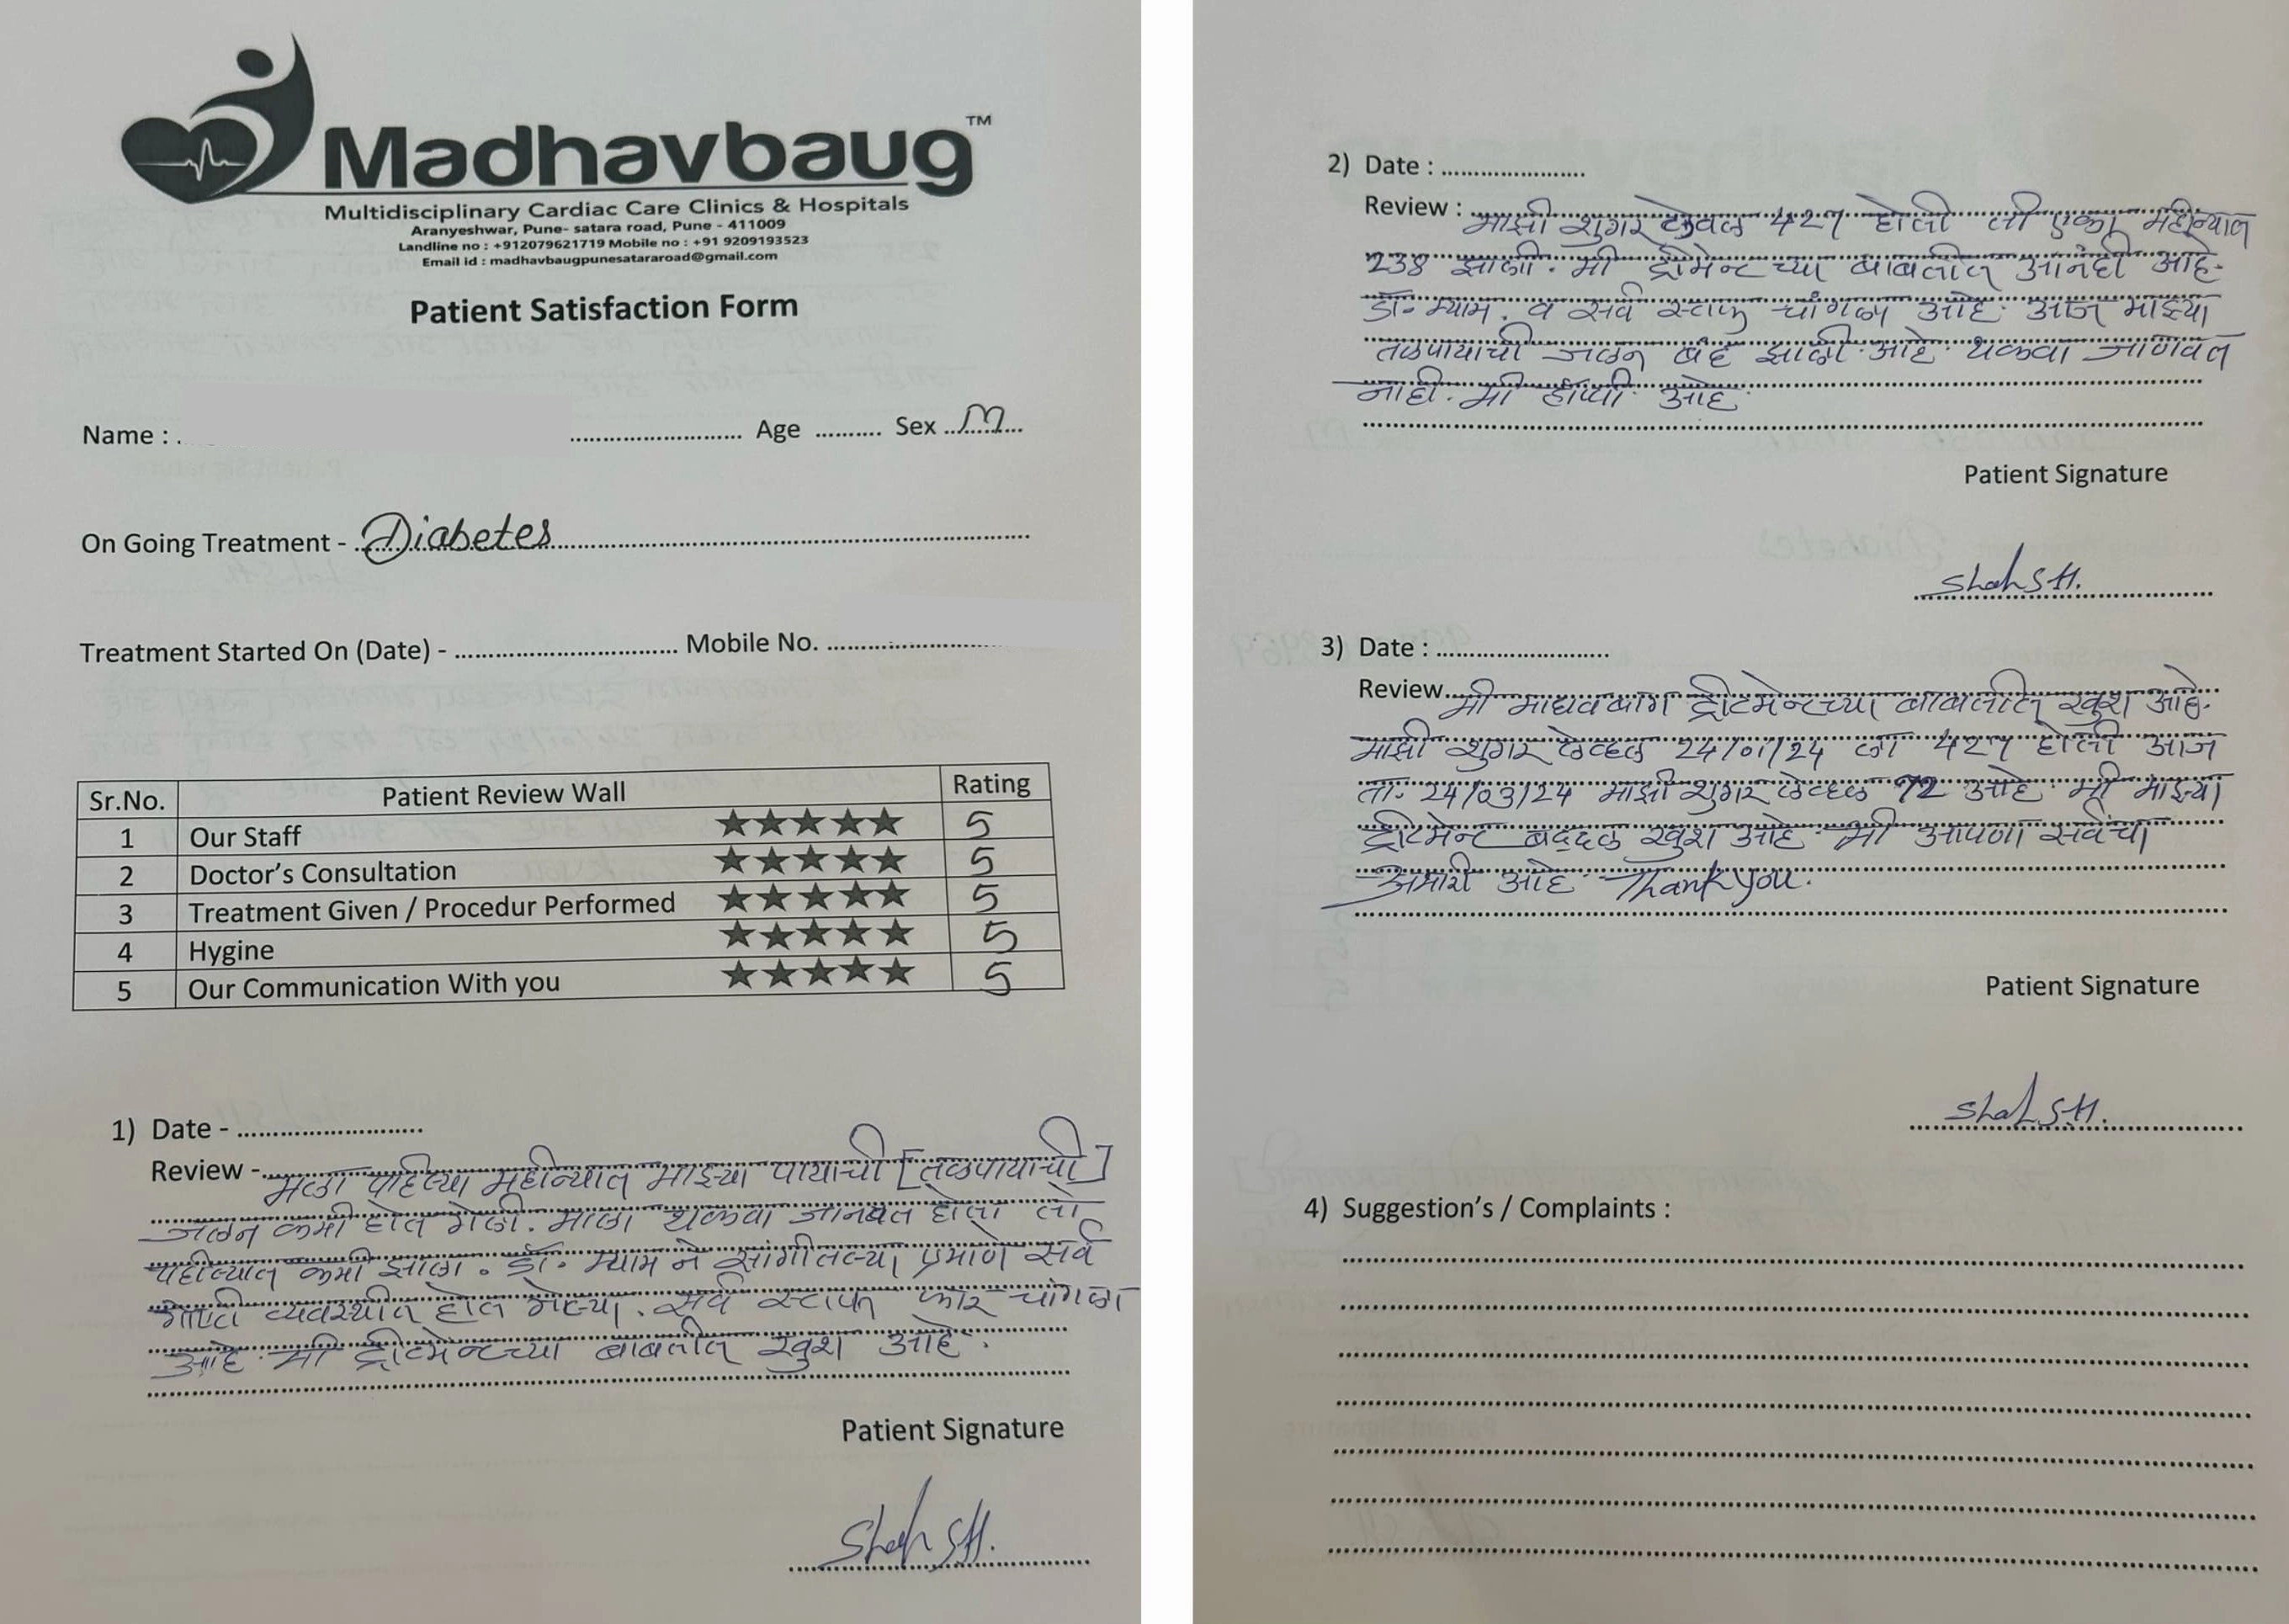 Madhavbaug TM
Multidisciplinary Cardiac Care Clinics & Hospitals
Aranyeshwar, Pune- satara road, Pune - 411009
Landline no : +912079621719 Mobile no : +91 9209193523
Email id : madhavbaugpunesatararoad@gmail.com
Patient Satisfaction Form
Name : . .......................... Age .......... Sex ..M...
On Going Treatment - Diabetes
Treatment Started On (Date) - ................................ Mobile No. .........................
Sr.No. Patient Review Wall Rating
1 Our Staff ★★★★★ 5
2 Doctor's Consultation ★★★★★ 5
3 Treatment Given / Procedur Performed ★★★★★ 5
4 Hygine ★★★★★ 5
5 Our Communication With you ★★★★★ 5
1) Date - ..........................
Review - मला पहिल्या महीन्यात माझ्या पायाची [तळपायाची]
जळन कमी होत गेली. माला थकवा जानवत होता तो
पहील्यात कमी झाला. डॉ. म्याम ने सांगीतल्या प्रमाणे सर्व
गोष्टी व्यवस्थीत होत गेल्या. सर्व स्टाफ फार चांगला
आहे. मी ट्रीटमेन्टच्या बाबतीत खुश आहे.
Patient Signature
Shah S H.
2) Date : .....................
Review : माझी शुगर लेवल 427 होती ती एका महीन्यात
238 झाली. मी ट्रीमेन्टच्या बाबतीत आनंदी आहे.
डॉ. म्याम. व सर्व स्टाफ चांगला आहे. आज माझ्या
तळपायाची जळन बंद झाली आहे. थकवा जाणवत
नाही. मी हॅप्पी आहे.
Patient Signature
Shah S H.
3) Date : .........................
Review मी माधवबाग ट्रीटमेन्टच्या बाबतीत खुश आहे.
माझी शुगर लेव्हल 24/01/24 ला 427 होती आज
ता. 24/03/24 माझी शुगर लेव्हल 92 आहे. मी माझ्या
ट्रीटमेन्ट बद्दल खुश आहे. मी आपणा सर्वचा
अभारी आहे. Thank you.
Patient Signature
Shah S.H.
4) Suggestion's / Complaints :